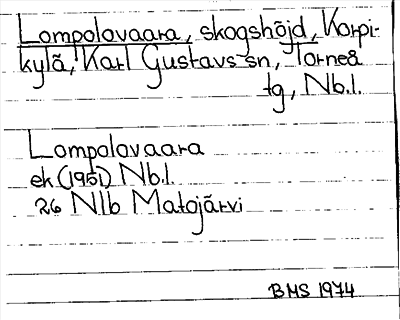 Lompolovaara, skogshöjd, Korpi-
kylä, Karl Gustavs sn, Torneå
tg, Nb.l.
Lompolovaara
ek (1951) Nb.l.
26 Nlb Matojärvi
BMS 1974